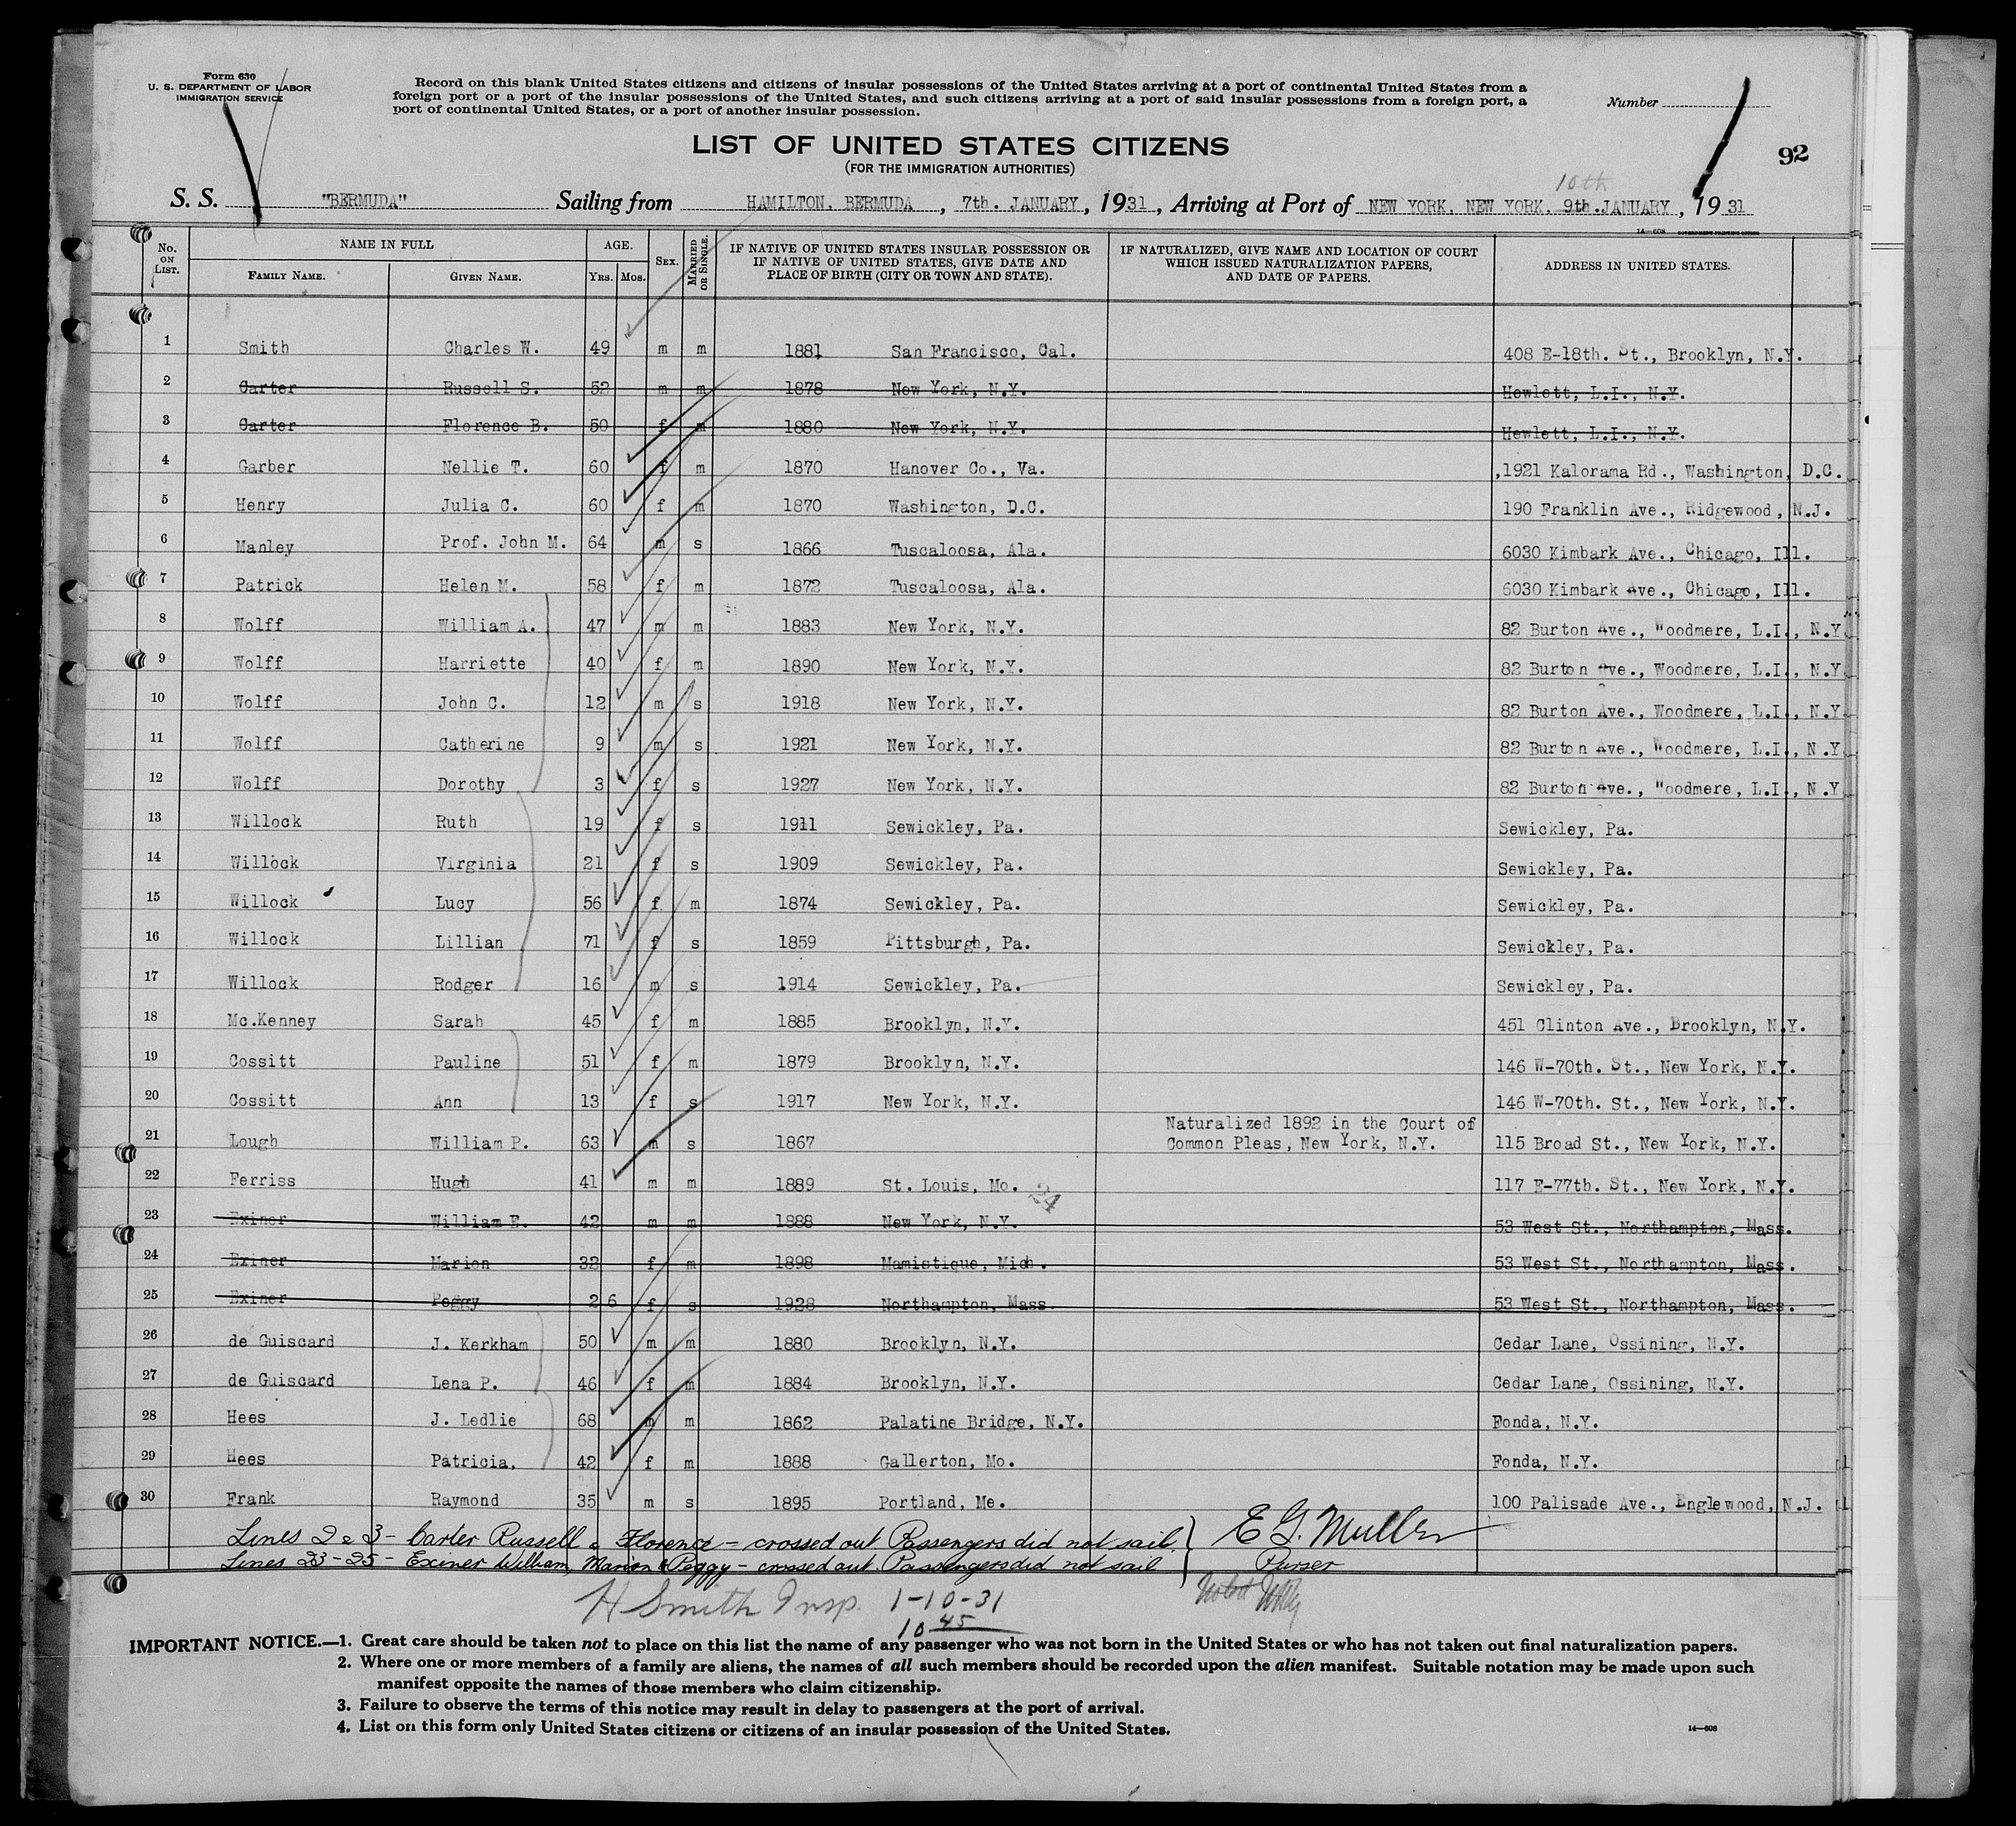 Form 630
U. S. DEPARTMENT OF LABOR
IMMIGRATION SERVICE
Record on this blank United States citizens and citizens of insular possessions of the United States arriving at a port of continental United States from a
foreign port or a port of the insular possessions of the United States, and such citizens arriving at a port of said insular possessions from a foreign port, a
port of continental United States, or a port of another insular possession.
Number
LIST OF UNITED STATES CITIZENS
(FOR THE IMMIGRATION AUTHORITIES)
92
10th
S. S. "BERMUDA" Sailing from HAMILTON, BERMUDA, 7th. JANUARY, 1931, Arriving at Port of NEW YORK, NEW YORK. 9th. JANUARY, 1931
14—608 GOVERNMENT PRINTING OFFICE
No. ON LIST. NAME IN FULL FAMILY NAME. GIVEN NAME. AGE. YRS. MOS. SEX. MARRIED OR SINGLE. IF NATIVE OF UNITED STATES INSULAR POSSESSION OR IF NATIVE OF UNITED STATES, GIVE DATE AND PLACE OF BIRTH (CITY OR TOWN AND STATE). IF NATURALIZED, GIVE NAME AND LOCATION OF COURT WHICH ISSUED NATURALIZATION PAPERS, AND DATE OF PAPERS. ADDRESS IN UNITED STATES.
1 Smith Charles W. 49 m m 1881 San Francisco, Cal. 408 E-18th. St., Brooklyn, N.Y.
2 Carter Russell S. 52 m m 1878 New York, N.Y. Hewlett, L.I., N.Y.
3 Carter Florence B. 50 f m 1880 New York, N.Y. Hewlett, L.I., N.Y.
4 Garber Nellie T. 60 f m 1870 Hanover Co., Va. ,1921 Kalorama Rd., Washington, D.C.
5 Henry Julia C. 60 f m 1870 Washington, D.C. 190 Franklin Ave., Ridgewood, N.J.
6 Manley Prof. John M. 64 m s 1866 Tuscaloosa, Ala. 6030 Kimbark Ave., Chicago, Ill.
7 Patrick Helen M. 58 f m 1872 Tuscaloosa, Ala. 6030 Kimbark Ave., Chicago, Ill.
8 Wolff William A. 47 m m 1883 New York, N.Y. 82 Burton Ave., Woodmere, L.I., N.Y
9 Wolff Harriette 40 f m 1890 New York, N.Y. 82 Burton Ave., Woodmere, L.I., N.Y
10 Wolff John C. 12 m s 1918 New York, N.Y. 82 Burton Ave., Woodmere, L.I., N.Y.
11 Wolff Catherine 9 m s 1921 New York, N.Y. 82 Burton Ave., Woodmere, L.I., N.Y.
12 Wolff Dorothy 3 f s 1927 New York, N.Y. 82 Burton Ave., Woodmere, L.I., N.Y
13 Willock Ruth 19 f s 1911 Sewickley, Pa. Sewickley, Pa.
14 Willock Virginia 21 f s 1909 Sewickley, Pa. Sewickley, Pa.
15 Willock Lucy 56 f m 1874 Sewickley, Pa. Sewickley, Pa.
16 Willock Lillian 71 f s 1859 Pittsburgh, Pa. Sewickley, Pa.
17 Willock Rodger 16 m s 1914 Sewickley, Pa. Sewickley, Pa.
18 Mc.Kenney Sarah 45 f m 1885 Brooklyn, N.Y. 451 Clinton Ave., Brooklyn, N.Y.
19 Cossitt Pauline 51 f m 1879 Brooklyn, N.Y. 146 W-70th. St., New York, N.Y.
20 Cossitt Ann 13 f s 1917 New York, N.Y. 146 W-70th. St., New York, N.Y.
21 Lough William P. 63 m s 1867 Naturalized 1892 in the Court of Common Pleas, New York, N.Y. 115 Broad St., New York, N.Y.
22 Ferriss Hugh 41 m m 1889 St. Louis, Mo. 24 117 E-77th. St., New York, N.Y.
23 Exiner William E. 42 m m 1888 New York, N.Y. 53 West St., Northampton, Mass.
24 Exiner Marion 32 f m 1898 Mamistique, Mich. 53 West St., Northampton, Mass.
25 Exiner Peggy 2 6 f s 1928 Northampton, Mass. 53 West St., Northampton, Mass.
26 de Guiscard J. Kerkham 50 m m 1880 Brooklyn, N.Y. Cedar Lane, Ossining, N.Y.
27 de Guiscard Lena P. 46 f m 1884 Brooklyn, N.Y. Cedar Lane, Ossining, N.Y.
28 Hees J. Ledlie 68 m m 1862 Palatine Bridge, N.Y. Fonda, N.Y.
29 Hees Patricia, 42 f m 1888 Gallerton, Mo. Fonda, N.Y.
30 Frank Raymond 35 m s 1895 Portland, Me. 100 Palisade Ave., Englewood, N.J.
Lines 2 & 3 - Carter Russell & Florence - crossed out Passengers did not sail. } E G. Muller
Lines 23-25 - Exiner William, Marion & Peggy - crossed out. Passengers did not sail Purser
H Smith Insp. 1-10-31
10 45
IMPORTANT NOTICE.—1. Great care should be taken not to place on this list the name of any passenger who was not born in the United States or who has not taken out final naturalization papers.
2. Where one or more members of a family are aliens, the names of all such members should be recorded upon the alien manifest. Suitable notation may be made upon such
manifest opposite the names of those members who claim citizenship.
3. Failure to observe the terms of this notice may result in delay to passengers at the port of arrival.
4. List on this form only United States citizens or citizens of an insular possession of the United States.
14—608